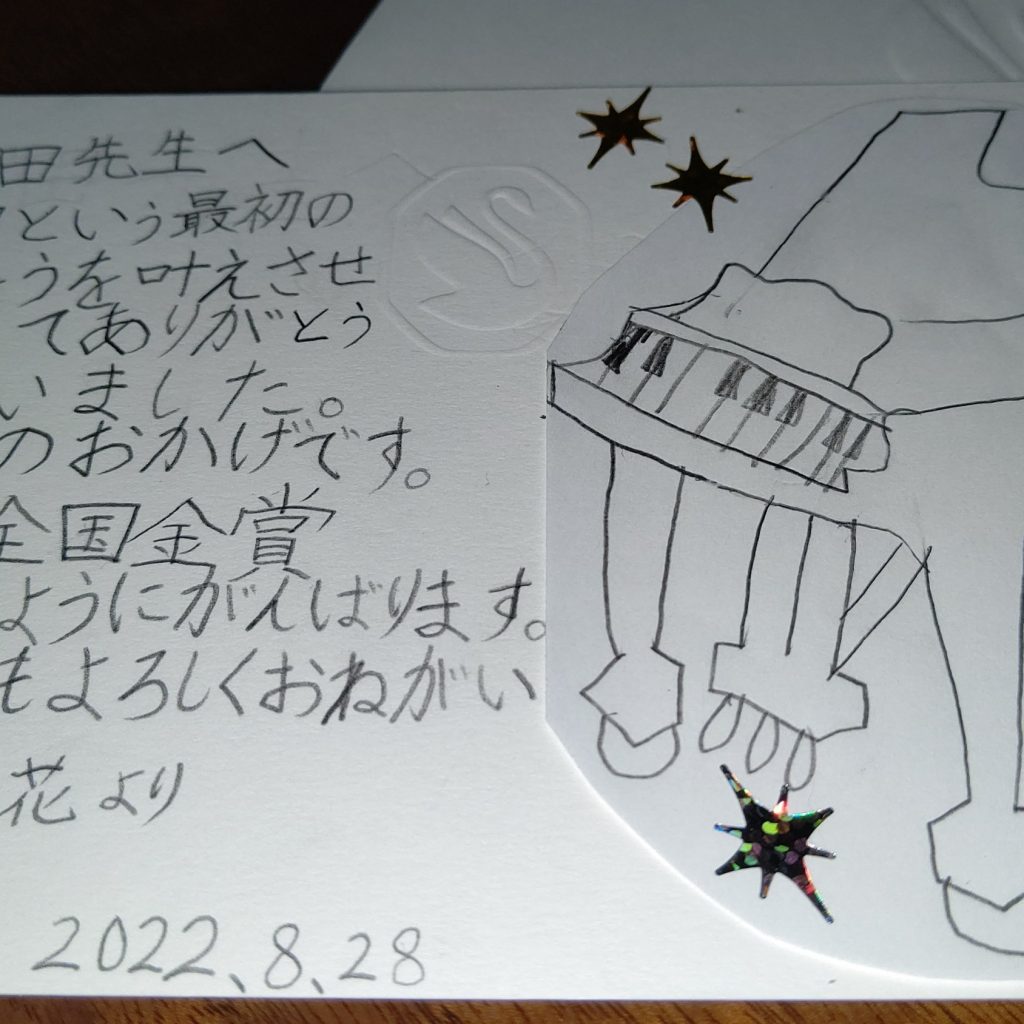 田先生へ
という最初の
うを叶えさせ
てありがとう
いました。
のおかげです。
全国金賞
ようにがんばります。
もよろしくおねがい
花より
2022、8、28